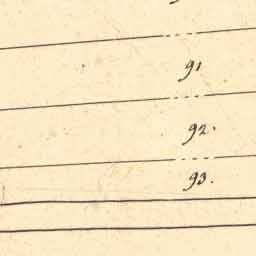 91
92.
93.